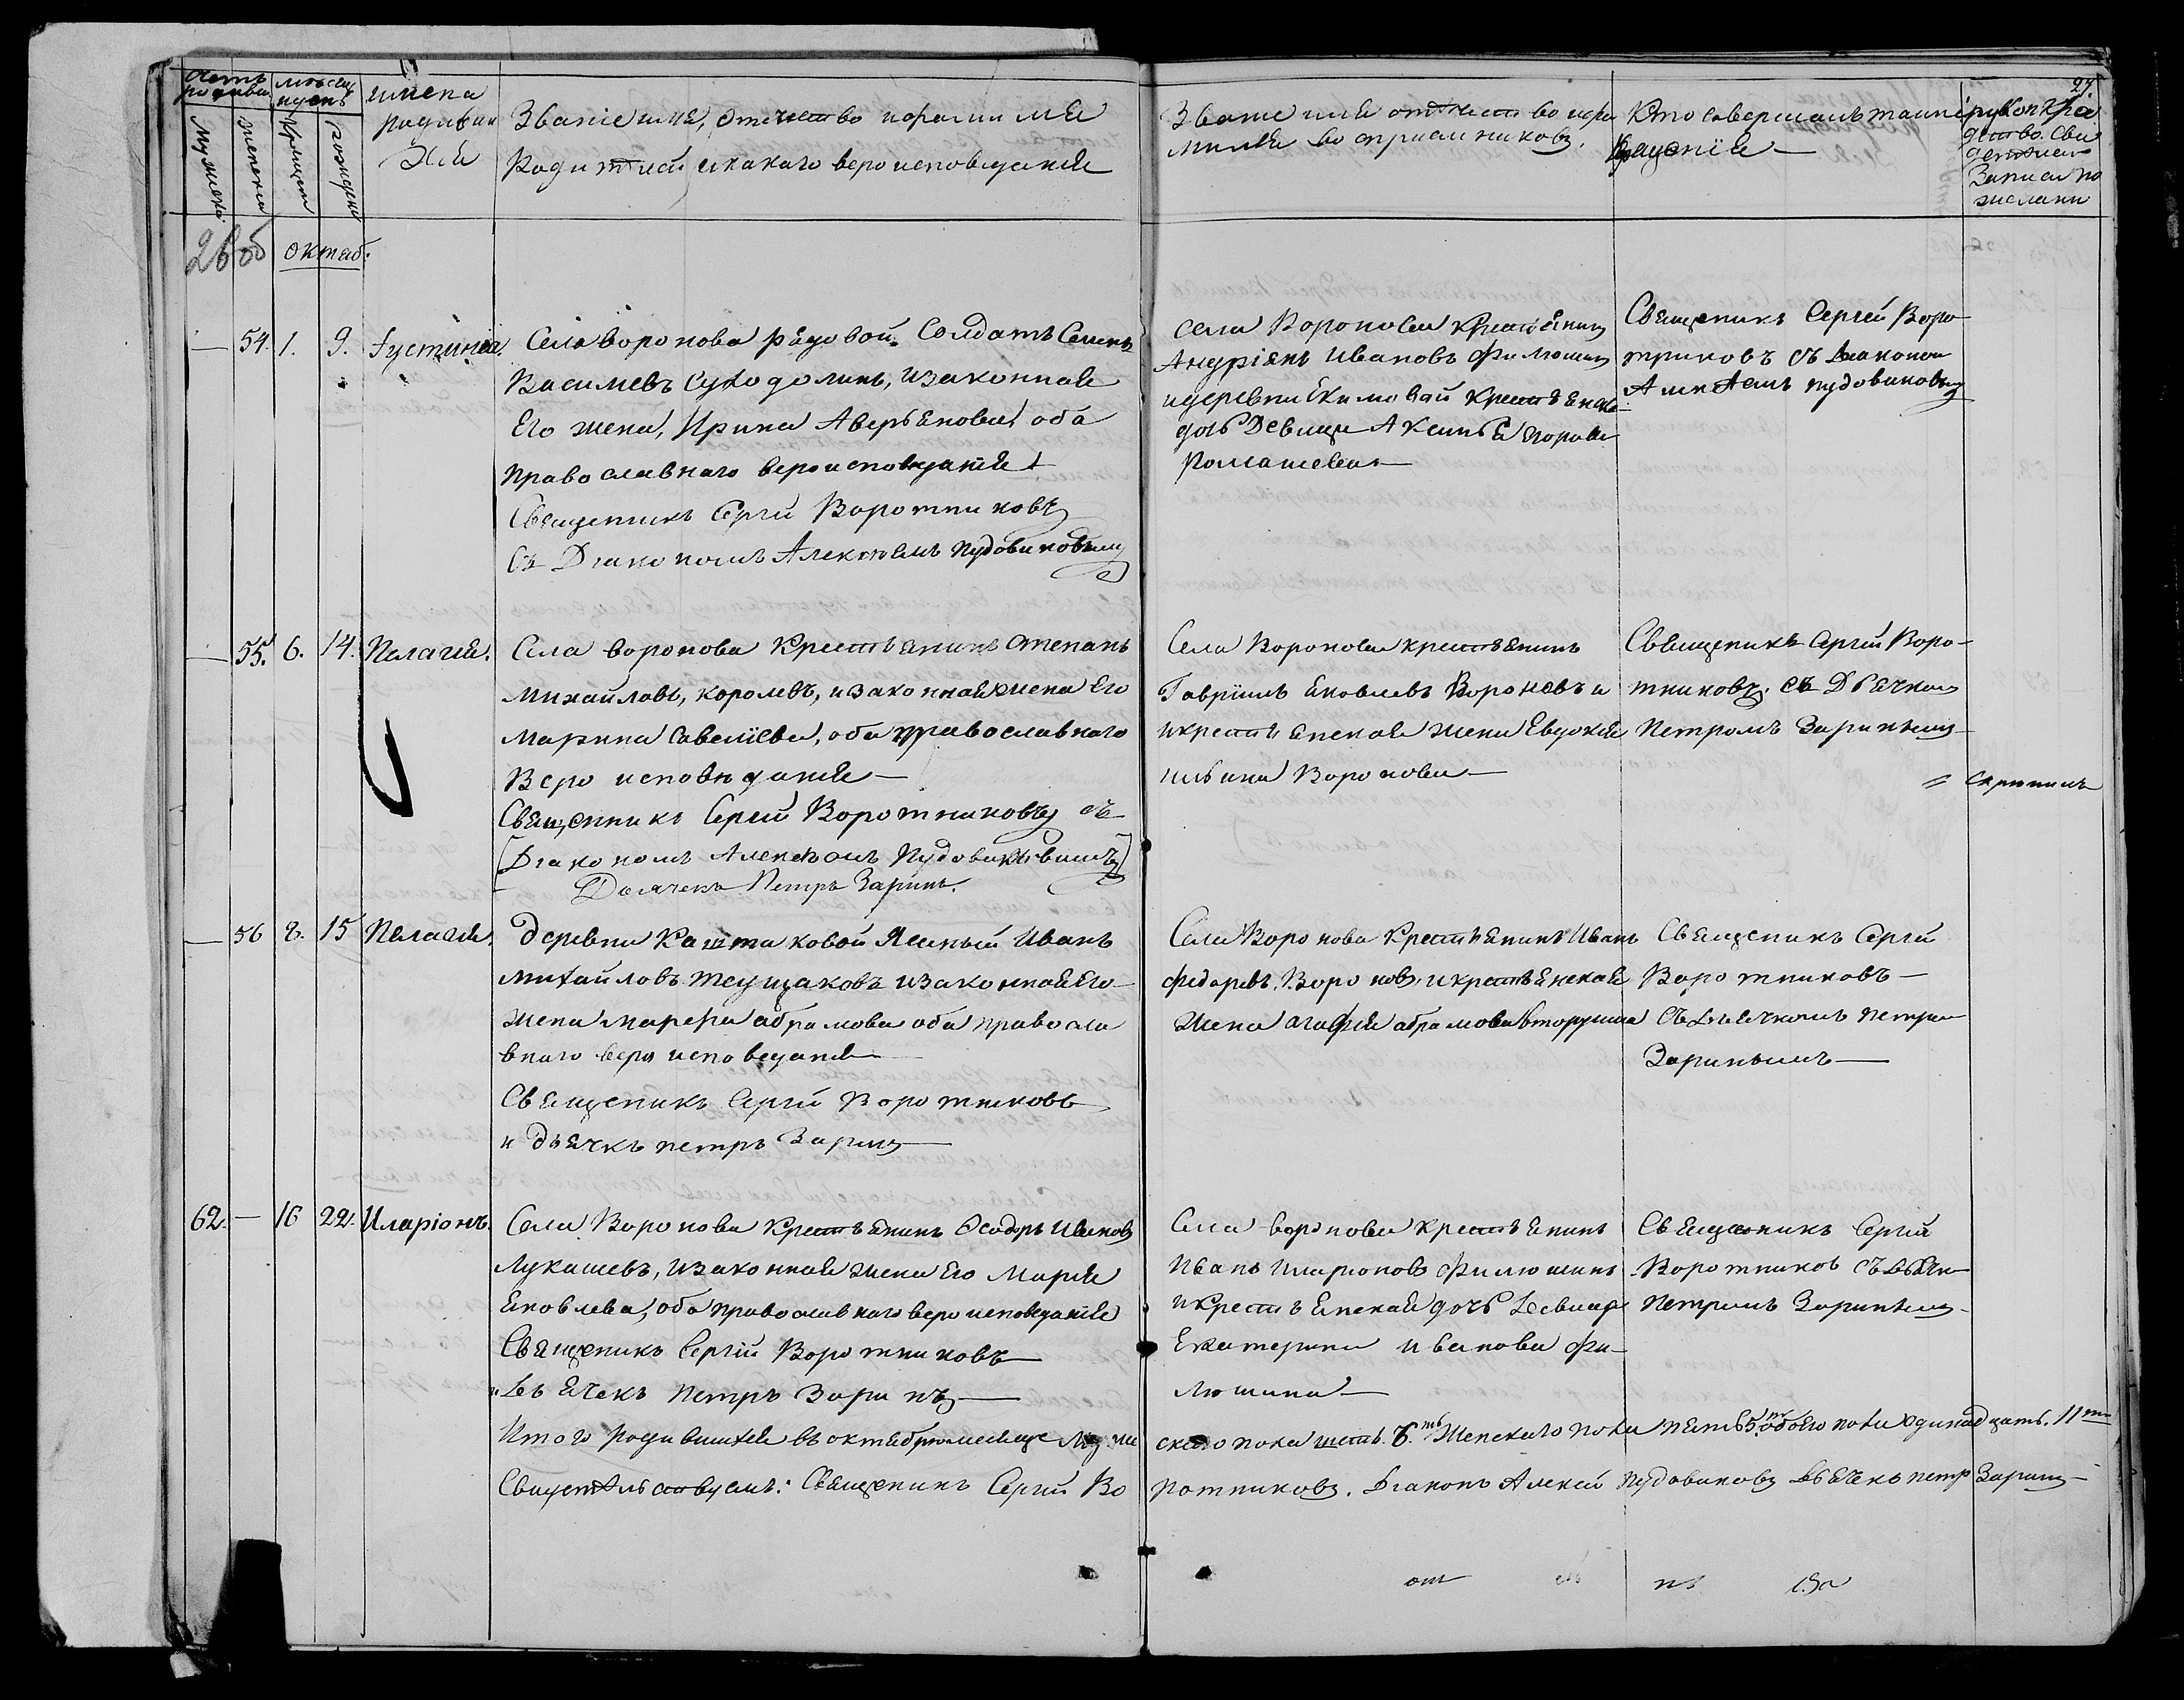 27.
Имена
родивших
ся
Званіе имя, отчество и фамилія
Родителей и какаго вероисповеданія
Званіе имя отчество и фа
милія восприемниковъ.
Кто совершалъ таин
Крещенія
Записи по
желани
26 об октяб.
— 54. 1. 9. Іустинія. Села Воронова рядовой Солдатъ Семенъ
Василіевъ Суходолинъ, изаконная
Его жена, Ирина Аверьянова оба
православнаго вероисповеданія
Священникъ Сергій Воротниковъ
Съ Діакономъ Алексѣемъ Пудовиковымъ
Села Воронова Крестьянинъ
Андріянъ Ивановъ Филюшинъ
идеревни Екимовой Крестьянска
дочь Девица Аксинья Егорова
Ромашева
Священникъ Сергей Воро
тниковъ съ Діаконом
Алексѣемъ Пудовиковым
— 55. 6. 14. Пелагия. Села Воронова Крестьянинъ Степанъ
Михайловъ, королевъ, изаконная жена Его
Марина Савелиева, оба православнаго
Вероисповѣданія
Священникъ Сергій Воротниковъ съ
Діакономъ Алексѣемъ Пудовиковымъ
Дьячекъ Петръ Заринъ.
Села Воронова крестьянинъ
Гавріилъ Яковлевъ Вороновъ и
и крестьянская жена Евдокия
Ильина Воронова
Священникъ Сергій Воро-
тниковъ съ Дьячком
Петромъ Заринымъ
Скрепилъ
— 56 8. 15 Пелагия. Деревни Каштаковой Ясашный Иванъ
Михайловъ Тещаковъ изаконная Его
жена Марфа Абрамова оба правосла
внаго вероисповеданія
Священникъ Сергій Воротниковъ
и Дьячкъ Петръ Заринъ
Села Воронова Крестьянинъ Иванъ
Федоровъ Вороновъ, и крестьянская
жена Агафия Абрамова Вторушина
Священникъ Сергій
Воротниковъ
Съ Дьячкомъ Петром
Заринымъ
62. — 16 22. Иларіонъ. Села Воронова Крестьянинъ Ѳеодоръ Ивановъ
Лукашевъ, изаконная жена Его Марія
Яковлева, оба православнаго вероисповеданія
Священникъ Сергій Воротниковъ
Дьячекъ Петръ Заринъ
Села Воронова крестьянинъ
Иванъ Иларионовъ Филюшинъ
и Крестьянская дочь Девица
Екатерина Иванова Фи
люшина
Священникъ Сергій
Воротников съ Дьячк
Петромъ Заринымъ
Итого родившихся въ октябрѣ месяце муже
скаго пола шесть. 6.ть Женскаго пола пять 5.ть обоего пола одинадцать. 11ть
Свидетельствуемъ: Священникъ Сергій Во
ротниковъ. Діаконъ Алексей Пудовиковъ Дьячекъ Петръ Заринъ